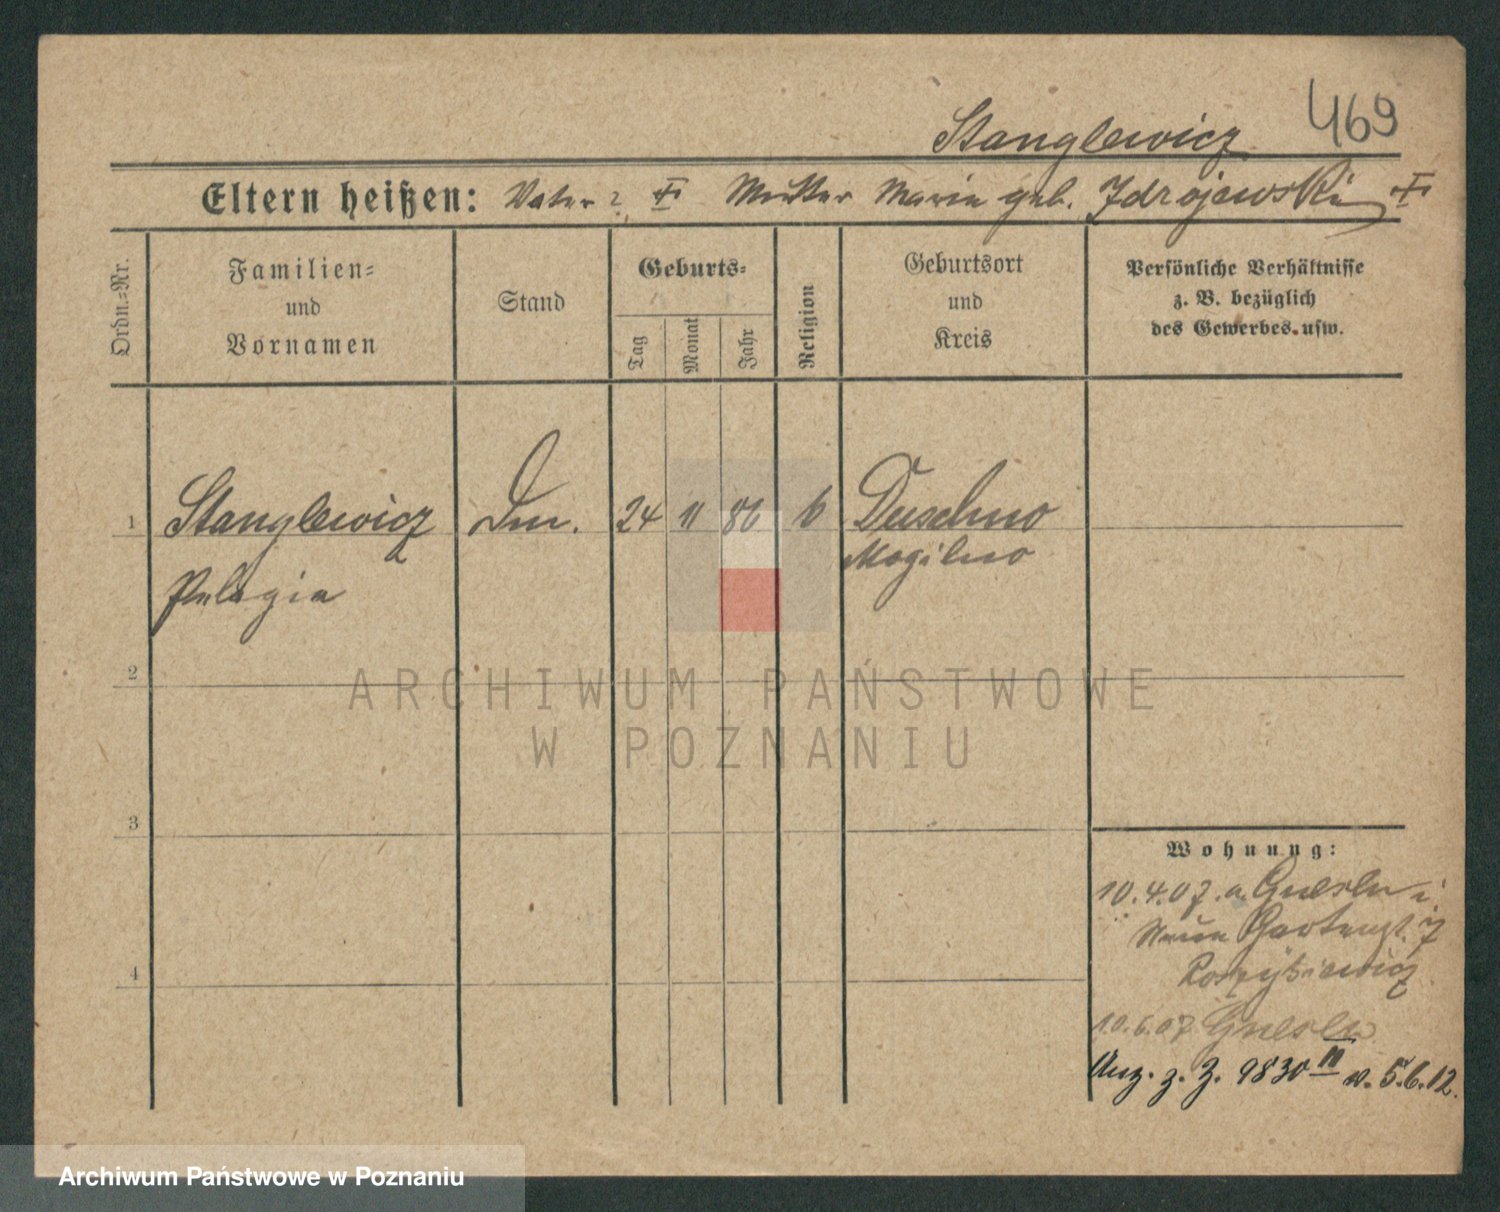 469
Stanglewicz
Eltern heißen: Vater ? † Mutter Maria geb. Zdrojewski †
Ordn.-Nr.
Familien-
und
Vornamen
Stand
Geburts-
Tag
Monat
Jahr
Religion
Geburtsort
und
Kreis
Persönliche Verhältnisse
z. B. bezüglich
des Gewerbes usw.
1
Stanglewicz
Pelagia
24 11 86
Duschno
Mogilno
2
ARCHIWUM PAŃSTWOWE
W POZNANIU
3
4
Wohnung:
10.4.07. a. Gnesen
Neue Gartenst. 7
10.6.07 Gnesen
Anz. z. Z. 9830 II v. 5.6.12.
Archiwum Państwowe w Poznaniu